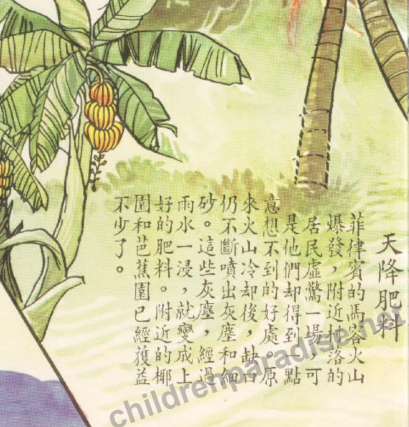 天降肥料
菲律賓的馬容火山
爆發，附近村落的
居民虛驚一場。可
是他們却得到一點
意想不到的好處。原
來火山冷却後，缺口
仍不斷噴出灰塵和細
砂。這些灰塵，經過
雨水一浸，就變成上
好的肥料。附近的椰
園和芭蕉園已經獲益
不少了。
childrenparadise.net